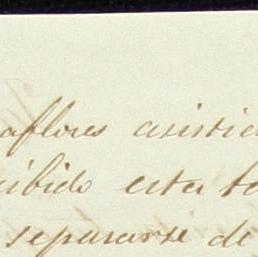 aflores asistie
cibido esta ta
separarse de